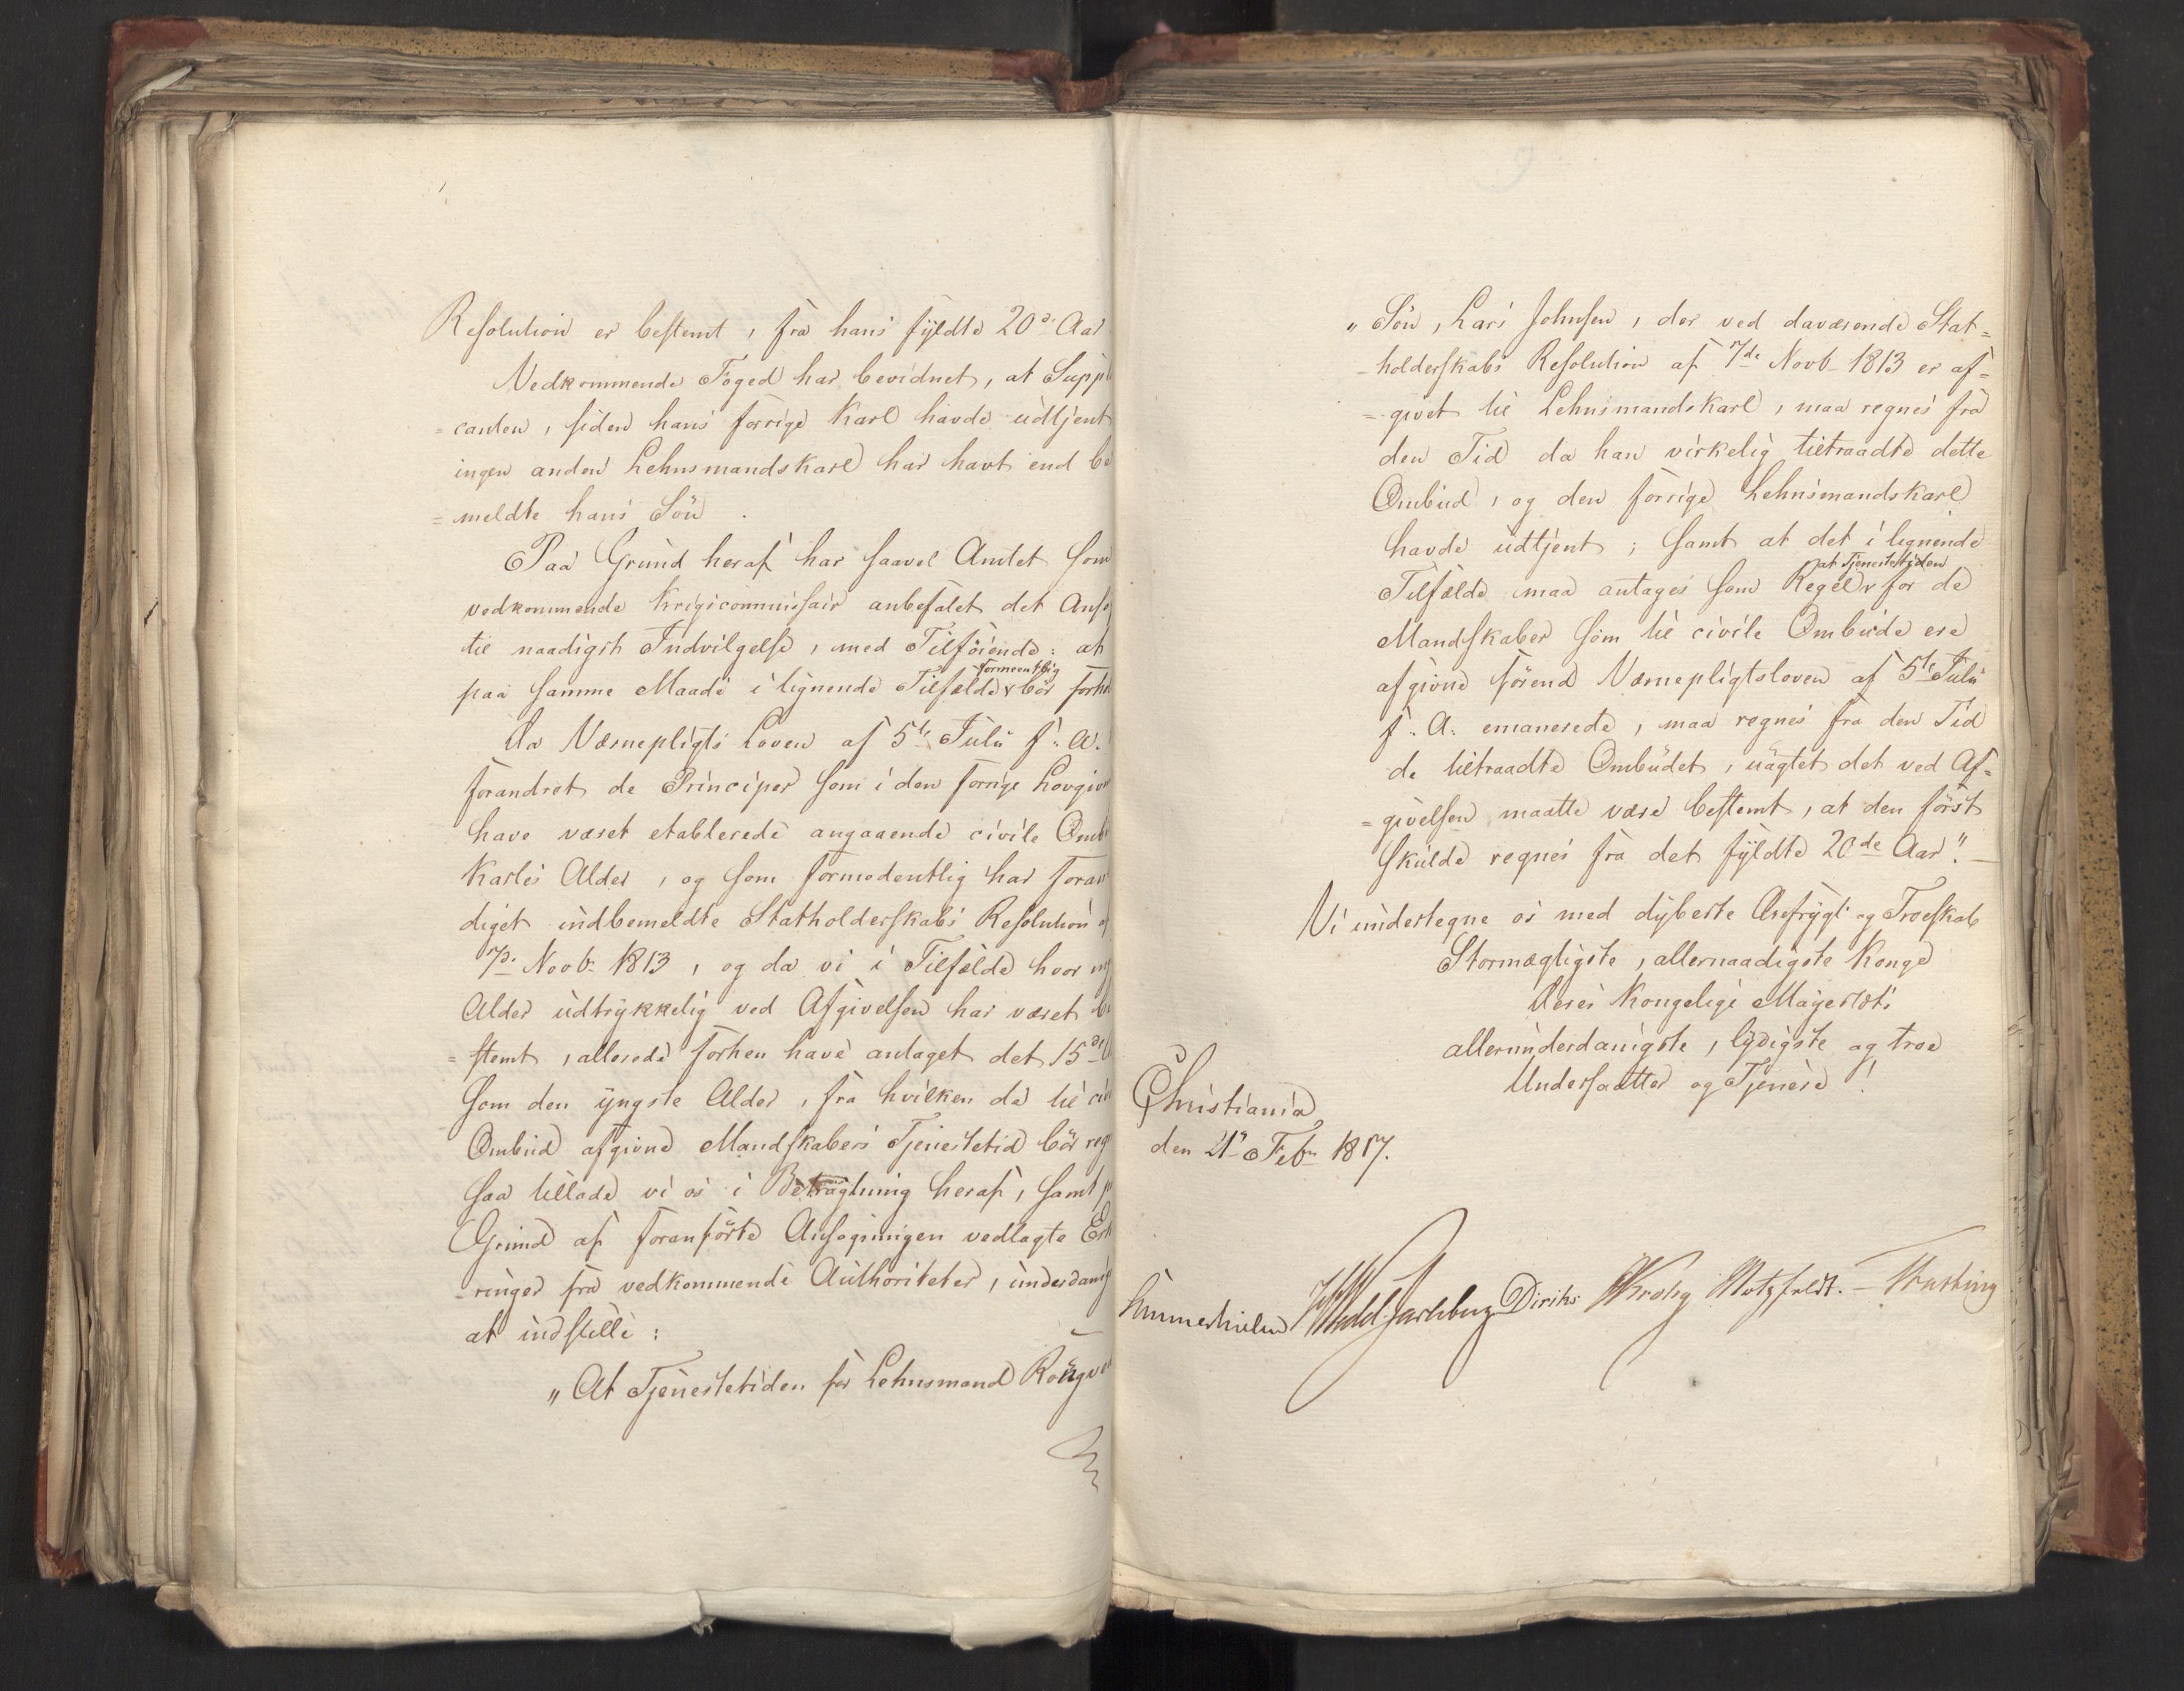 Resolution er bestemt, fra hans fyldte 20de Aar
Vedkommende Foged har bevidnet, at Suppli
=canten, siden hans forrige Karl havde udtjent
ingen anden Lehnsmandskarl har havt end be
=meldte hans Sön.
Paa Grund heraf har saavel Amtet som
vedkommende Krigscommissair anbefalet det Ansø
til naadigst Indvilgelse, med Tilföiende: at
formeentlig
paa samme Maade i lignende Tilfælde bör forho
Da Værnepligts Loven af 5te Julii f: A.
forandret de Principer som i den forrige Lovgivn
have været etablerede angaaende civile Omb
Karles Alder, og som formodentlig har foran
diget indbemeldte Statholderskabs Resolution af
7de Novb 1813, og da vi i Tilfælde hvor
Alder udtrykkelig ved Afgivelsen har været be
=stemt, allerede forhen have antaget det 15de
som den yngste Alder, fra hvilken de til civ
Ombud afgivne Mandskabers Tjenestetid bör reg
saa tillade vi os i Betragtning heraf, samt p
Grund af foranförte Ansögningen vedlagte Erk
=ringer fra vedkommende Authoriteter, underdanig
at indstille:
"At Tjenestetiden for Lehnsmand
"Sön, Lars Johnsen, der ved daværende Stat=
=holderskabs Resolution af 7de Novb 1813 er af=
=givet til Lehnsmandskarl, maa regnes fra
den Tid da han virkelig tiltraadte dette
Ombud, og den forrige Lehnsmandskarl
havde udtjent; samt at det i lignende
at Tjenestetiden
Tilfælde maa antages som Regel for de
Mandskaber som til civile Ombude ere
afgivne förend Værnepligtsloven af 5te Julii
f. A. emanerede, maa regnes fra den Tid
de tiltraadte Ombudet, uagtet det ved Af=
=givelsen maatte være bestemt, at den först
skulde regnes fra det fyldte 20de Aar." —
Vi undertegne os med dybeste Ærefrygt og Troeskab
Stormægtigste, allernaadigste Konge
Deres Kongelige Majestæts
allerunderdanigste, lydigste og troe
Undersaatter og Tjenere!
Christiania
den 21de Febr 1817.
Hummerhielm Wedel Jarlsberg Diriks Krohg Motzfeldt. Treschow